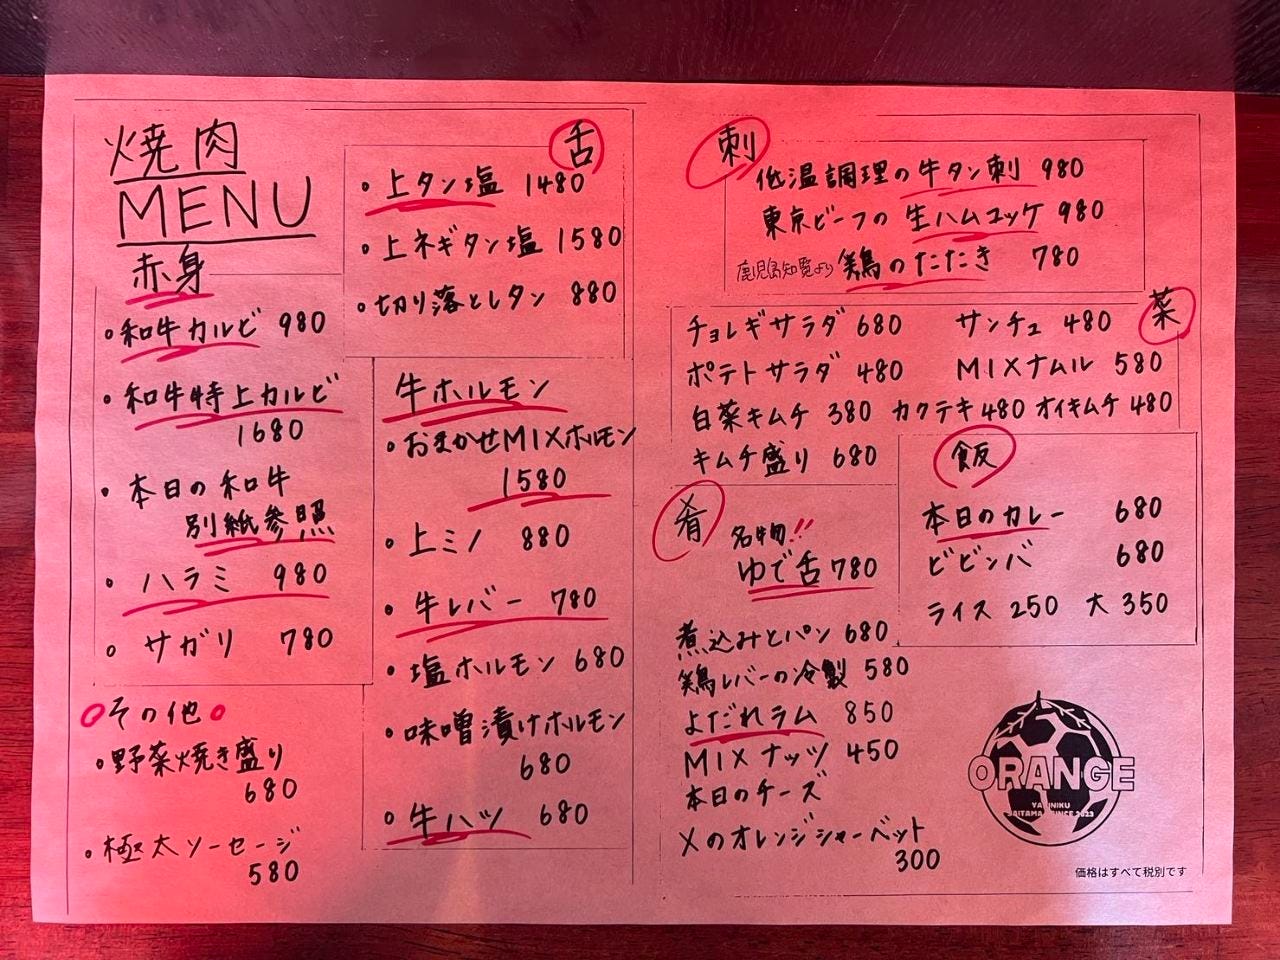 焼肉
MENU
赤身
・和牛カルビ 980
・和牛特上カルビ
1680
・本日の和牛
別紙参照
・ハラミ 980
。サガリ 780
その他
・野菜焼き盛り
680
・極太ソーセージ
580
舌
・上タン塩 1480
・上ネギタン塩 1580
・切り落としタン 880
牛ホルモン
・おまかせMIXホルモン
1580
・上ミノ 880
・牛レバー 780
・塩ホルモン 680
・味噌漬けホルモン
680
。牛ハツ 680
刺
低温調理の牛タン刺 980
東京ビーフの生ハムユッケ 980
鹿児島知覧より 鶏のたたき 780
菜
チョレギサラダ 680 サンチュ 480
ポテトサラダ 480 MIXナムル 580
白菜キムチ 380 カクテキ 480 オイキムチ 480
キムチ盛り 680
飯
本日のカレー 680
ビビンバ 680
ライス 250 大 350
肴
名物!!
ゆで舌 780
煮込みとパン 680
鶏レバーの冷製 580
よだれラム 850
MIXナッツ 450
本日のチーズ
〆のオレンジシャーベット
300
ORANGE
YAKINIKU
SAITAMA SINCE 2023
価格はすべて税別です